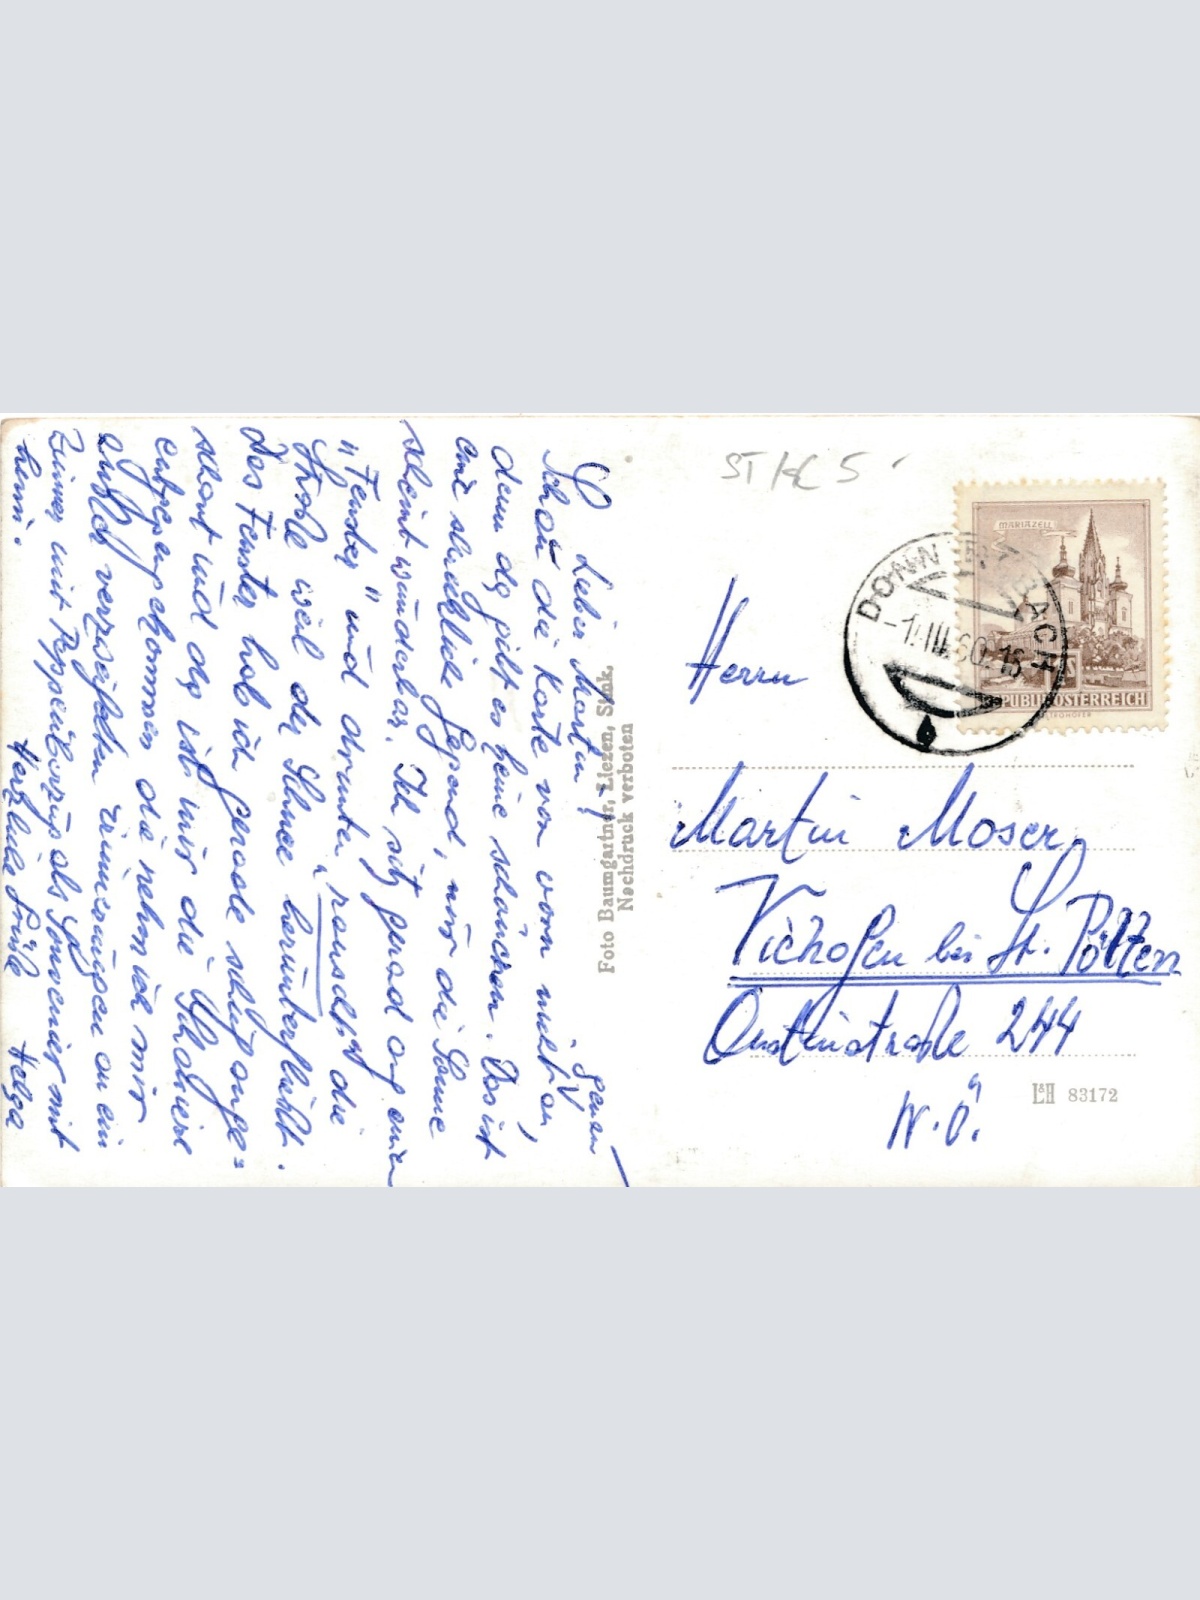 Lieber Martin!
Schau die Karte von vorn nicht an,
denn da gibt es keine schönen. Das ist
eine schreckliche Gegend, nur die Sonne
scheint wunderbar. Ich sitz gerad auf einem
"Fenster" und drunten "rauscht" die
Straße weil der Schnee herunterfließt.
Das Fenster hab ich gerade
schaut und da ist mir die
entgegengekommen die nehm ich mir
verzweifelten Erinnerungen an ein
Zimmer mit als Souvenier mit
heim.
Herzliche Grüße Helga
Foto Baumgartner, Liezen, Stmk.
Nachdruck verboten
ST KL 5
MARIAZELL
REPUBLIK ÖSTERREICH
DONNERSBACH
-1.III.60.-16
Herrn
Martin Moser
Viehofen bei St. Pölten
straße 244
N.Ö.
L&H 83172